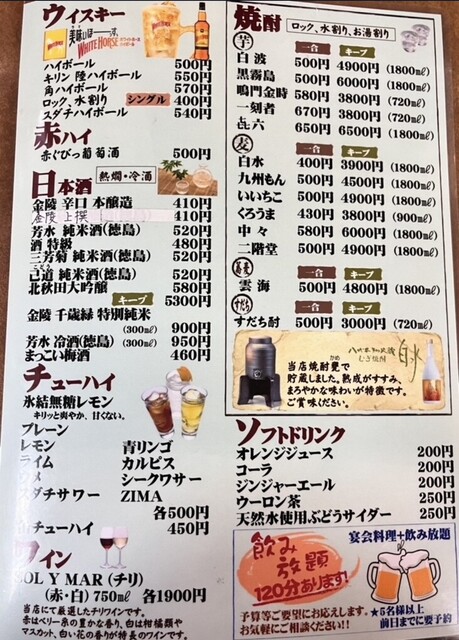 ウイスキー
美味いぜ
WHITE HORSE
ハイボール 500円
キリン 陸ハイボール 550円
角ハイボール 570円
ロック、水割り シングル 400円
スダチハイボール 540円
赤ハイ
赤ぐびっ葡萄酒 500円
日本酒 熱燗・冷酒
金陵 辛口 本醸造 410円
金陵 上撰 410円
芳水 純米酒(徳島) 520円
酒 特級 480円
三芳菊 純米酒(徳島)
純米酒(徳島) 520円
北秋田大吟醸 580円
キープ 5300円
金陵 千歳緑 特別純米
(300㎖) 900円
芳水 冷酒(徳島) (300㎖) 950円
まっこい梅酒 460円
チューハイ
氷結無糖レモン
キリッと爽やか、甘くない。
プレーン
レモン 青リンゴ
ライム カルピス
ウメ シークワサー
スダチサワー ZIMA
各500円
缶チューハイ 450円
ワイン
SOL Y MAR (チリ)
(赤・白) 750㎖ 各1900円
当店にて厳選したチリワインです。
赤はベリー系の豊かな香り、白は柑橘類や
マスカット、白い花の香りが特長のワインです。
焼酎 ロック、水割り、お湯割り
芋 一合 キープ
白波 500円 4900円 (1800㎖)
黒霧島 500円 6000円 (1800㎖)
鳴門金時 580円 3800円 (720㎖)
一刻者 670円 3800円 (720㎖)
㐂六 650円 6500円 (1800㎖)
麦 一合 キープ
白水 400円 3900円 (1800㎖)
九州もん 500円 4500円 (1800㎖)
いいちこ 500円 4900円 (1800㎖)
くろうま 430円 3800円 (900㎖)
中々 580円 6000円 (1800㎖)
二階堂 500円 4900円 (1800㎖)
蕎麦 一合 キープ
雲海 500円 4800円 (1800㎖)
すだち 一合 キープ
すだち酎 500円 3000円 (720㎖)
むぎ焼酎 白水
当店焼酎甕で
貯蔵しました。熟成がすすみ、
まろやかな味わいが特徴です。
ご賞味ください。
ソフトドリンク
オレンジジュース 200円
コーラ 200円
ジンジャーエール 200円
ウーロン茶 250円
天然水使用ぶどうサイダー 250円
飲み放題
120分あります!
宴会料理+飲み放題
予算等ご要望にお応えします。
お気軽にご相談ください!!
★5名様以上
前日までに要予約